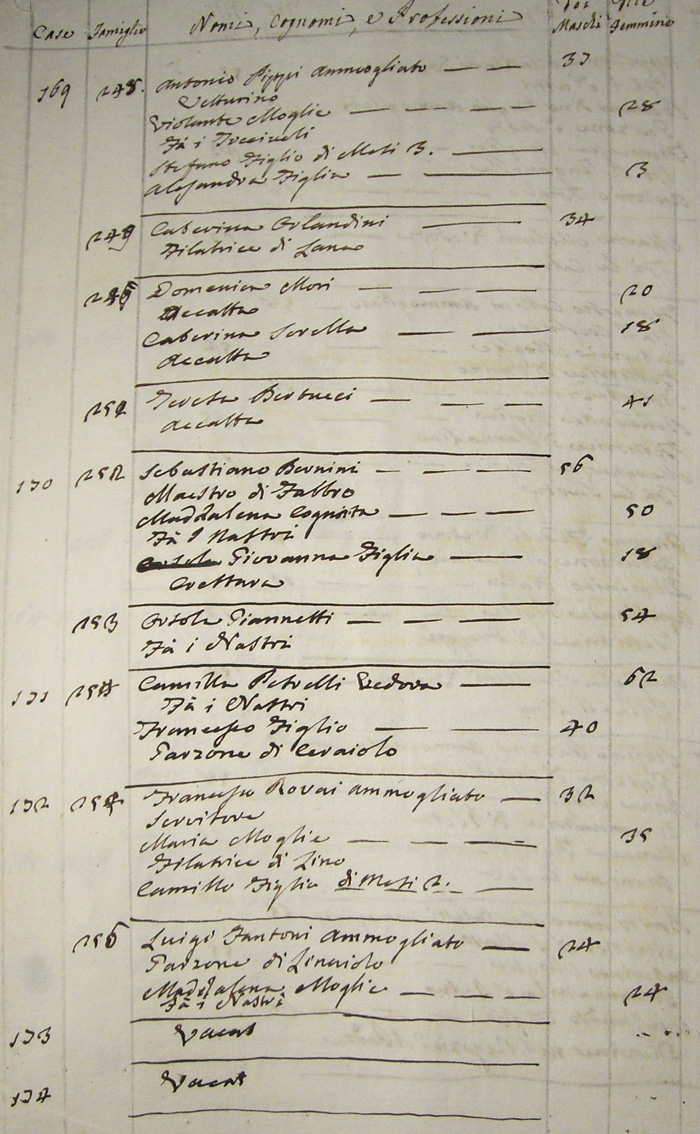 Case Famiglie Nomi, Cognomi, e Professioni Maschi Femmine
169 248. Antonio Pippi Ammogliato — — 37
Vetturino
Violante Moglie — — — — 28
Fà i
Stefano Figlio di Mesi 3. ——
Alessandra Figlia — —— 3
249 Caterina Orlandini —— —— 34
Filatrice di Lana
Domenica Mori — — — 20
Accatta
Caterina Sorella — — — 18
Accatta
Teresa Bertucci — — — 41
Accatta
170 Sebastiano Bernini — — — 56
Maestro di Fabbro
Maddalena Cognata — — — 50
Fà i Nastri
Giovanna Figlia — —— 18
Crestara
253 Orsola Giannetti — — — 54
Fà i Nastri
171 254 Camilla Petrelli Vedova —— 62
Fà i Nastri
Francesco Figlio — —— 40
Garzone di Ceraiolo
172 Francesco Rovai ammogliato — 32
Servitore
Maria Moglie — — — — 35
Filatrice di Lino
Camillo Figlio di Mesi 2. — —
256 Luigi Fantoni Ammogliato — 24
Garzone di Linaiolo
Maddalena Moglie — — — 24
Fà i Nastri
173 Vacat
174 Vacat